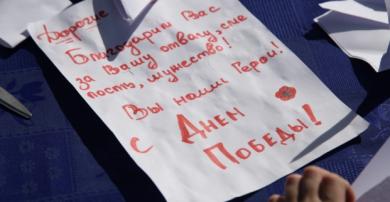 Дорогие
Благодарим Вас
за Вашу отвагу, сме
лость, мужество!
Вы наши Герои!
С Днем
Победы!